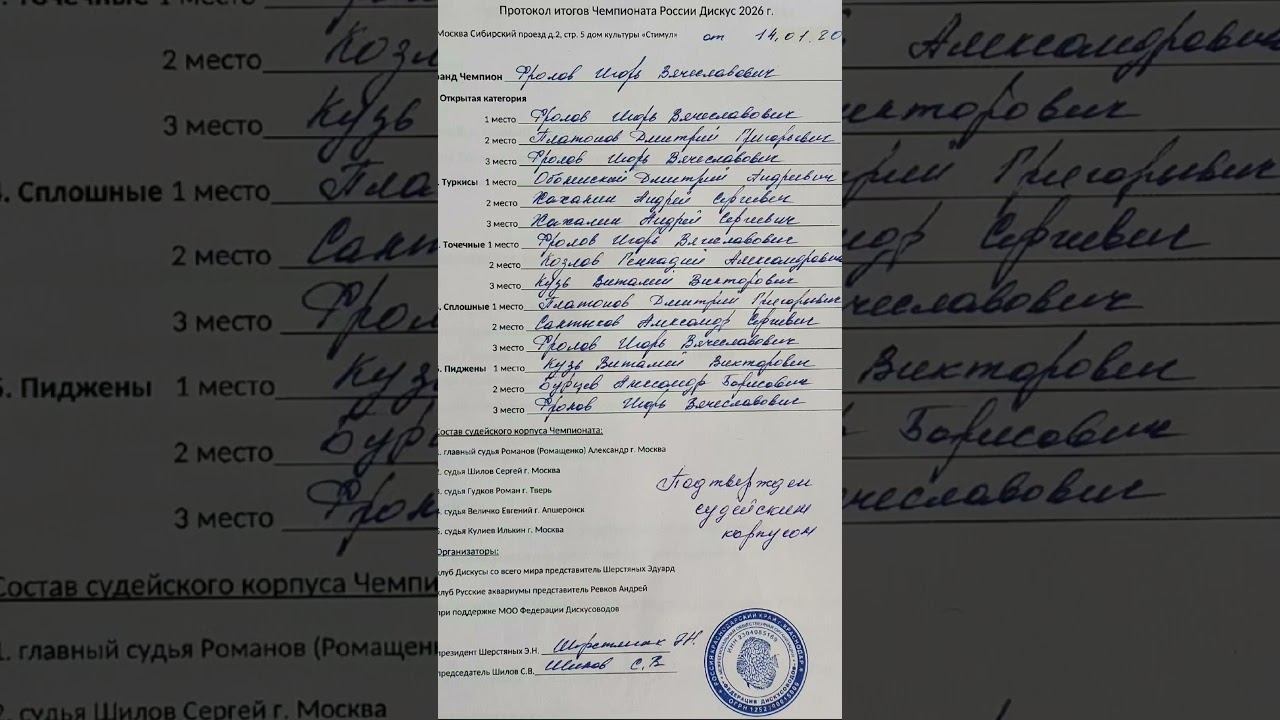 Протокол итогов Чемпионата России Дискус 2026 г.
Москва Сибирский проезд д.2, стр. 5 дом культуры «Стимул» от 14.01.20
ранд Чемпион Фролов Игорь Вячеславович
Открытая категория
1 место Фролов Игорь Вячеславович
2 место Платонов Дмитрий Григорьевич
3 место Фролов Игорь Вячеславович
. Туркисы 1 место Дмитрий Андреевич
2 место Андрей Сергиевич
3 место Андрей Сергиевич
. Точечные 1 место Фролов Игорь Вячеславович
2 место Козлов Геннадий Александрович
3 место Кузь Виталий Викторович
. Сплошные 1 место Платонов Дмитрий Григорьевич
2 место Салтыков Александр Сергиевич
3 место Фролов Игорь Вячеславович
. Пиджены 1 место Кузь Виталий Викторович
2 место Бурцев Александр Борисович
3 место Фролов Игорь Вячеславович
Состав судейского корпуса Чемпионата:
1. главный судья Романов (Ромащенко) Александр г. Москва
2. судья Шилов Сергей г. Москва
3. судья Гудков Роман г. Тверь
4. судья Величко Евгений г. Апшеронск
5. судья Кулиев Илькин г. Москва
Подтвержден
судейским
корпусом
Организаторы:
клуб Дискусы со всего мира представитель Шерстяных Эдуард
клуб Русские аквариумы представитель Ревков Андрей
при поддержке МОО Федерации Дискусоводов
президент Шерстяных Э.Н. Шерстяных Э.Н.
председатель Шилов С.В. Шилов С.В.
ФЕДЕРАЦИЯ ДИСКУСОВОДОВ
2 место Козл Александрович
3 место Кузь икторович
4. Сплошные 1 место Пла рий Григорьевич
2 место Салт др Сергиевич
3 место Фрол чеславович
5. Пиджены 1 место Куз Викторович
2 место Бур Борисович
3 место Фрол чеславович
Состав судейского корпуса Чемпи
1. главный судья Романов (Ромащен
2. судья Шилов Сергей г. Москва